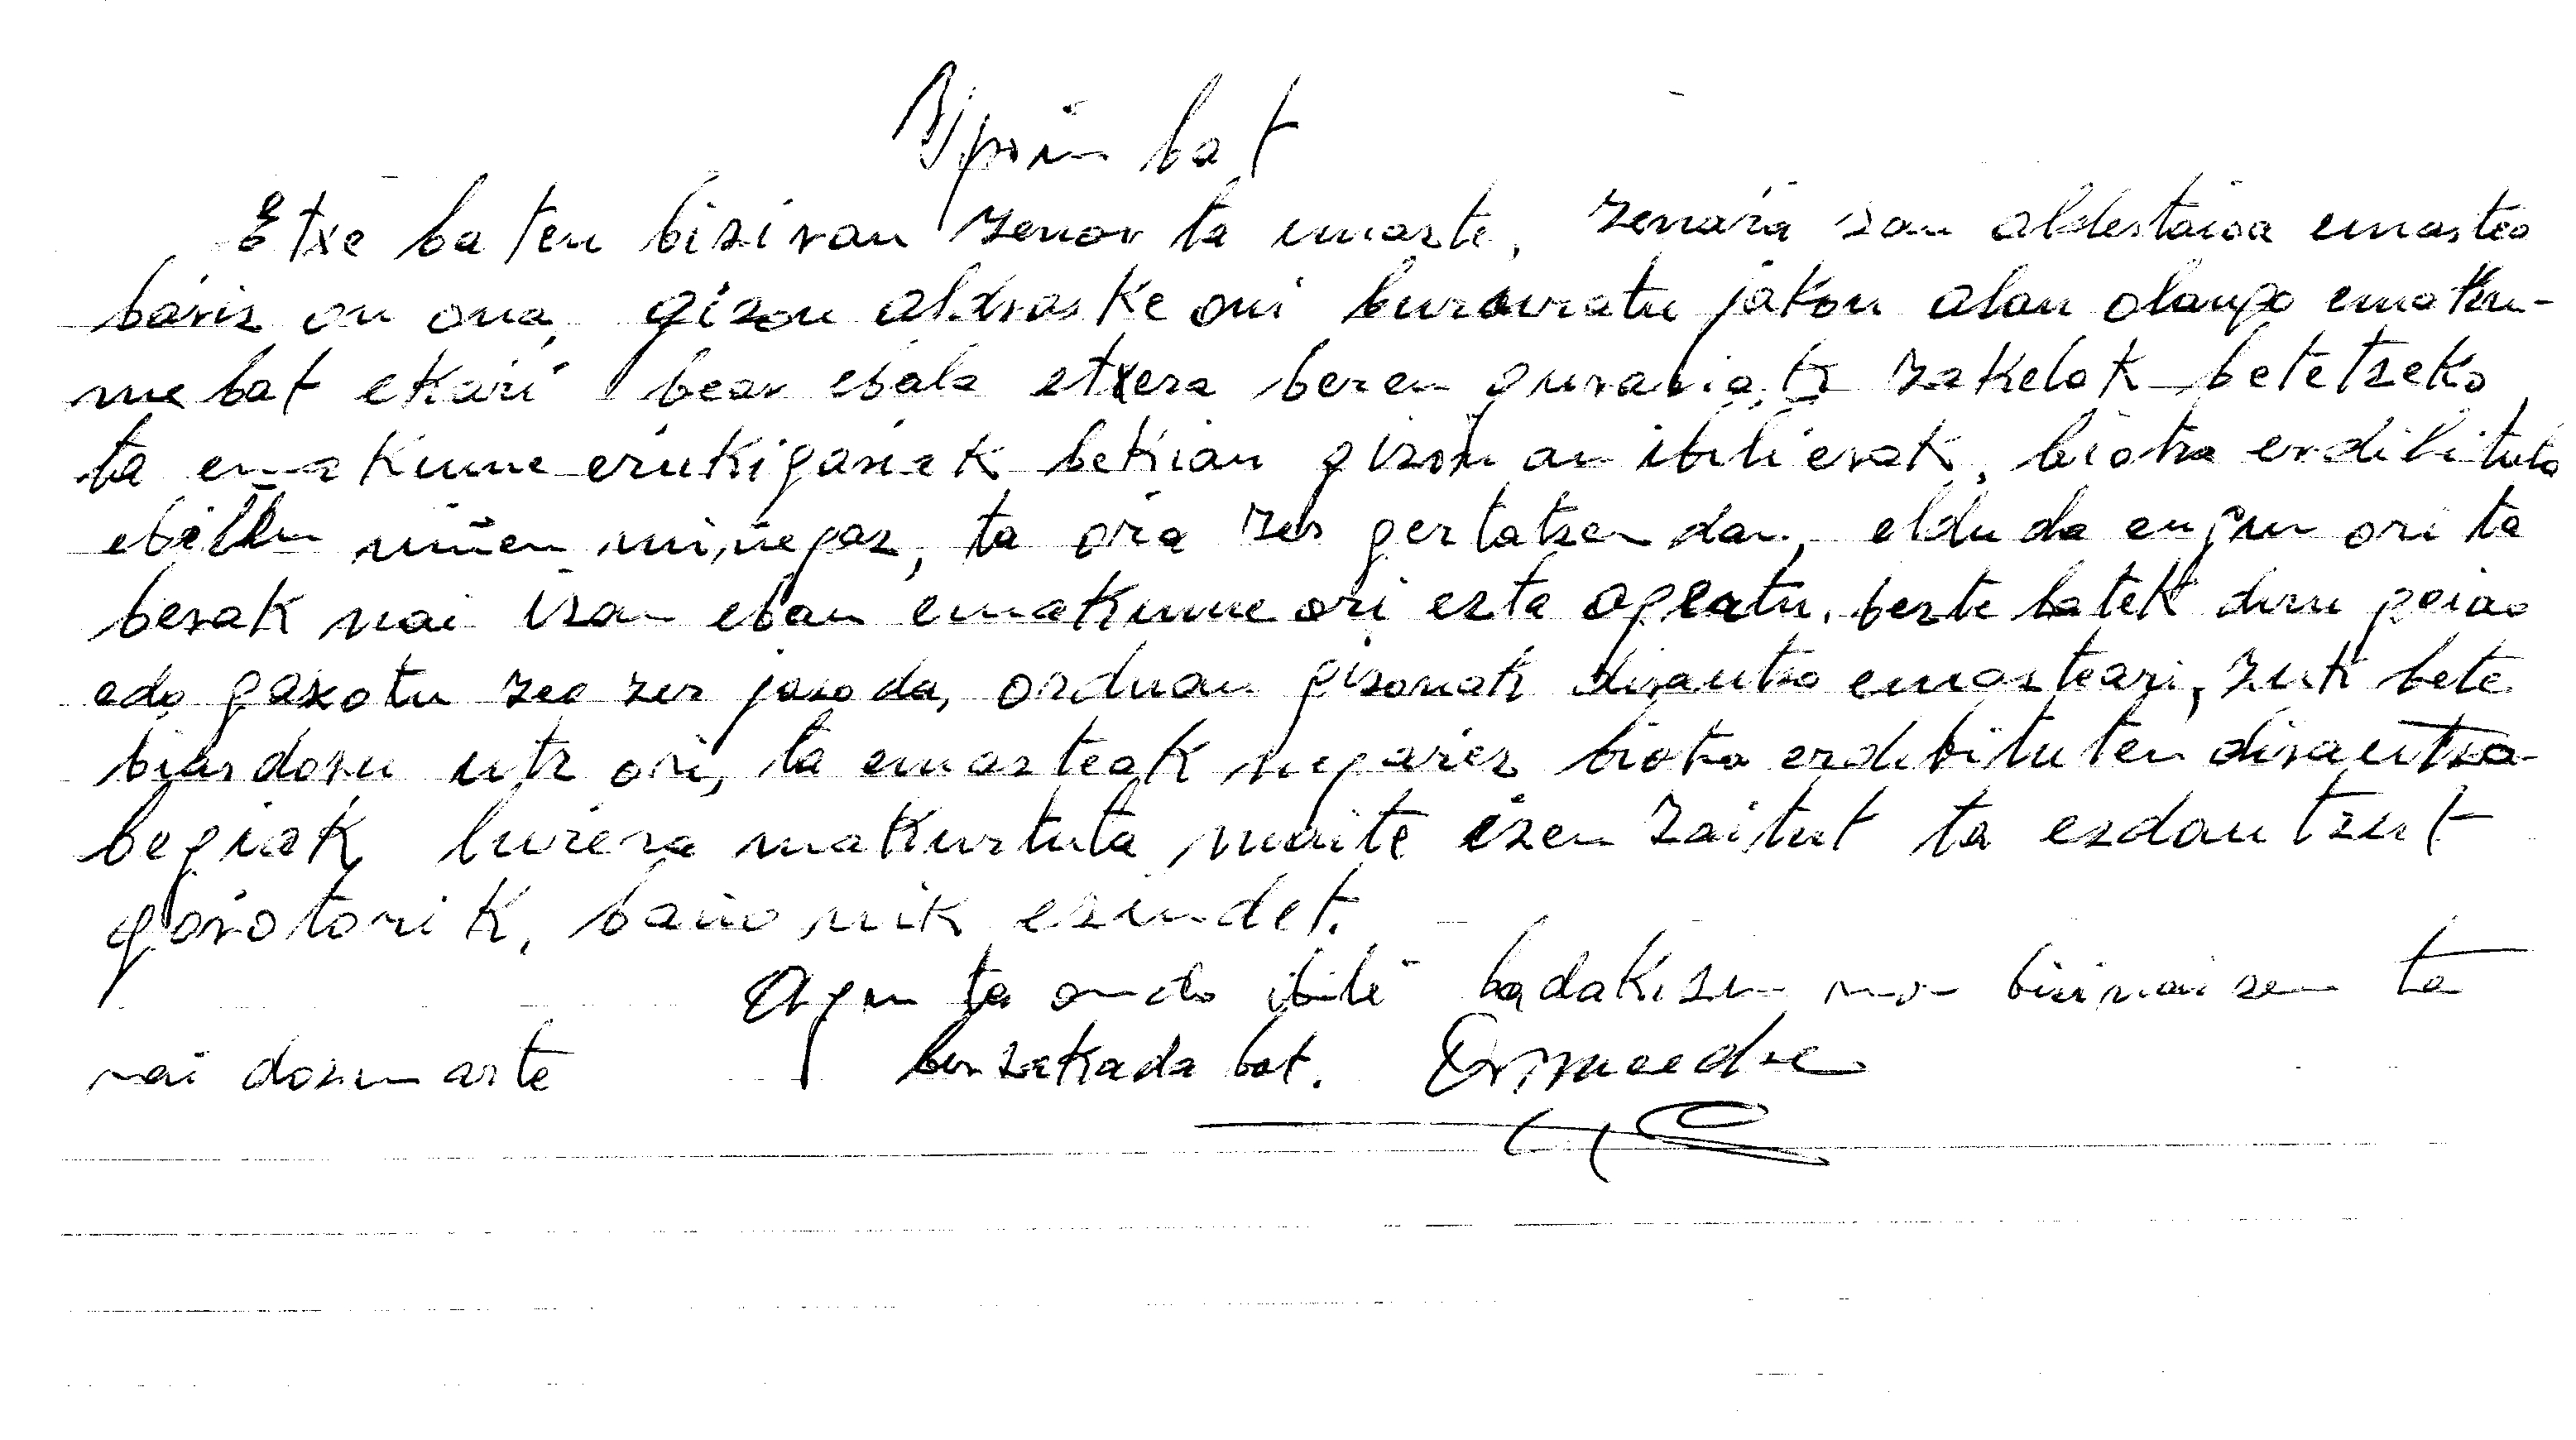 Ipuin bat
Etxe baten bizi ran zenar ta emazte, zenaŕa zan aldestaioa emaztea
baŕiz on ona, gizon aldraske oni bururatu jakon alan olango emaken-
me bat ekaŕi bear ebala etxera beren gurariak zakelak betetzeko
ta emakume eŕukigaŕiak bekian gizonan ibilierak, biotza erdibituta
ebillen miñen miñegaz, ta oŕa zer gertatzen dan, eldu da egun ori ta
berak nai izan eban emakume ori ezta agertu, beste batek diru geiao
edo gaxotu zeozer jaso da, orduan gizonak dirautso emazteari, zuk bete
biardozu utz ori, ta emazteak negaŕez biotza erdibituten dirautsa
begiak luŕera makurtuta maite izen zaitut ta ezdautzut
gorotorik, baño nik ezindet.
Agur ta ondo ibili badakizu non bizi naizen ta
nai dozunarte besarkada bat.